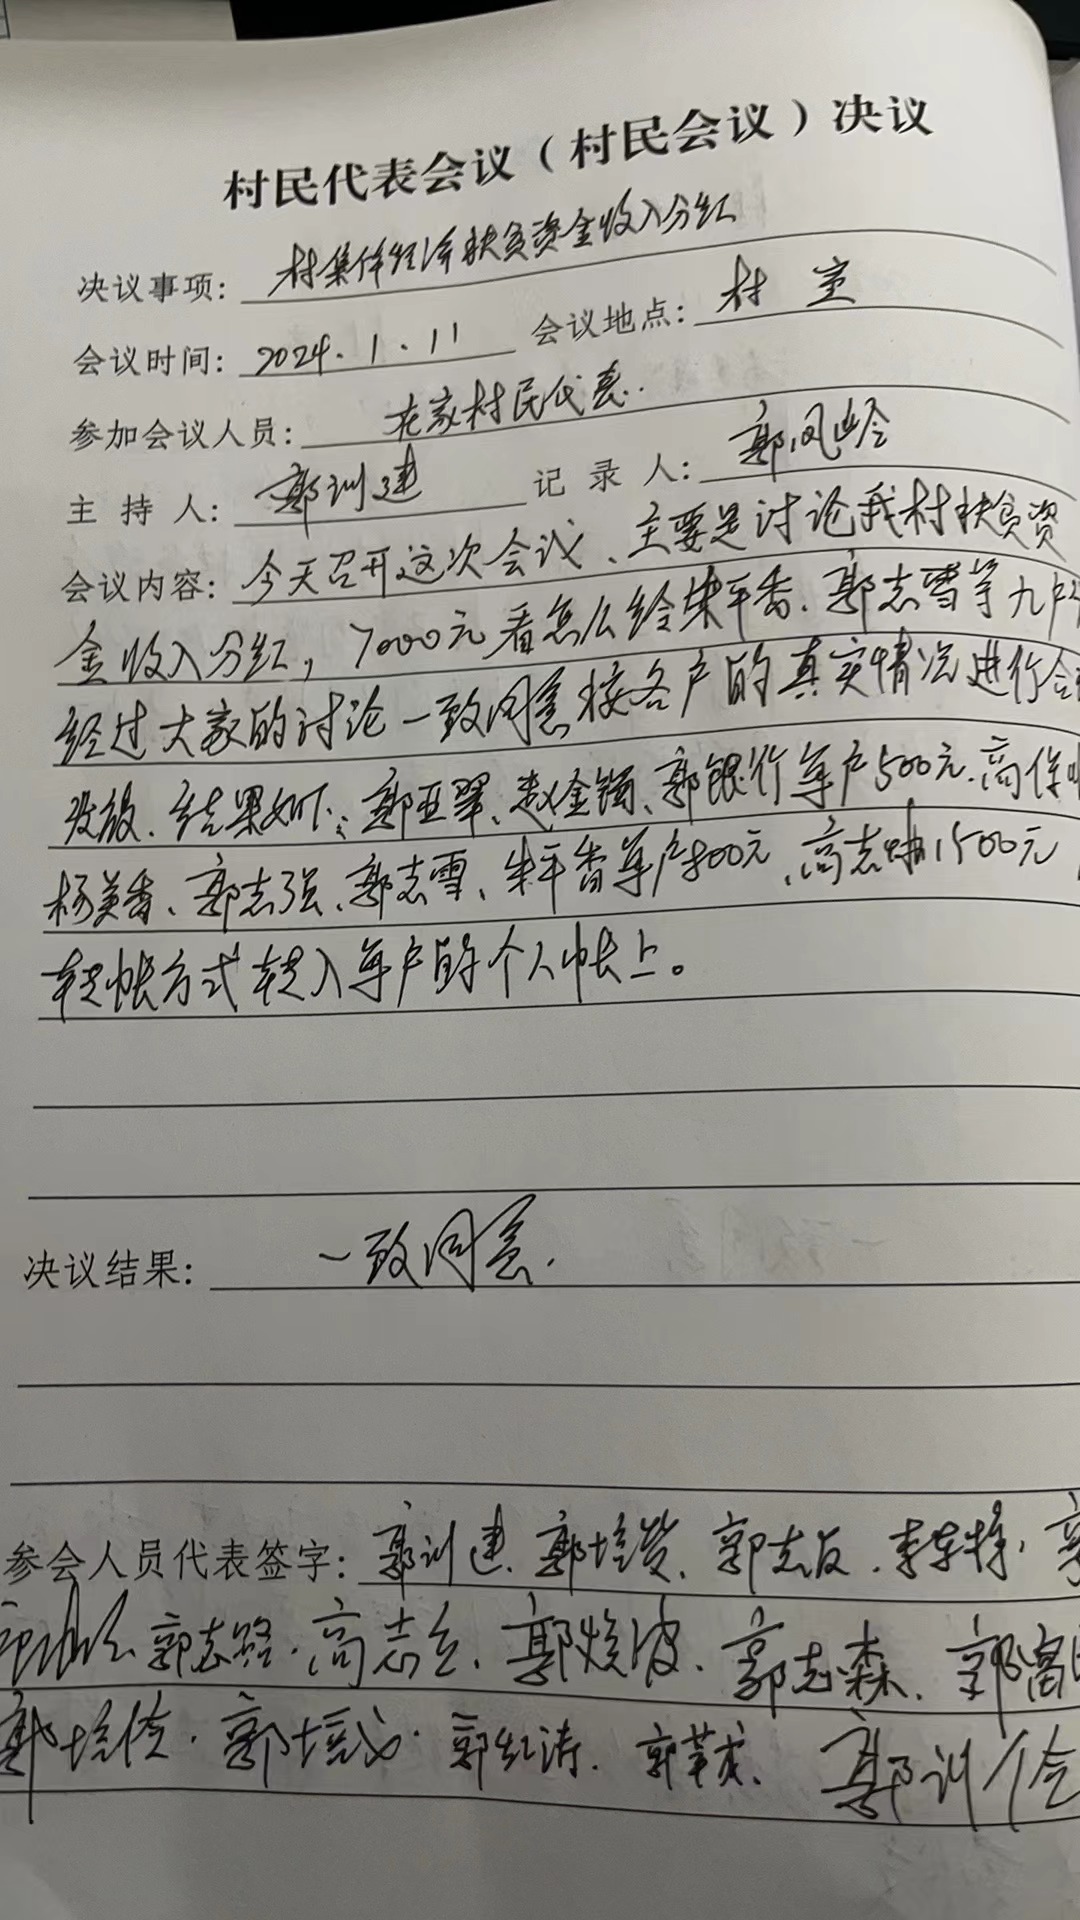 村民代表会议（村民会议）决议
决议事项: 村集体经济扶贫资金收入分红
会议时间: 2024.1.11 会议地点: 村室
参加会议人员: 在家村民代表.
主持人: 郭训建 记录人: 郭凤岭
会议内容: 今天召开这次会议、主要是讨论我村扶贫资
金收入分红，7000元看怎么给朱平香、郭志雪等九户
经过大家的讨论一致同意按各户的真实情况进行
发放、结果如下：郭亚翠、赵金镯、郭银行每户500元、高保
杨美香、郭志强、郭志雪、朱平香每户800元、高志 1500元
转帐方式转入每户的个人帐上。
决议结果: 一致同意.
参会人员代表签字: 郭训建、郭培 、郭志 、
郭志 、高志 、郭 波、郭志森、郭
郭培 、郭培 、郭红涛、郭 、郭训